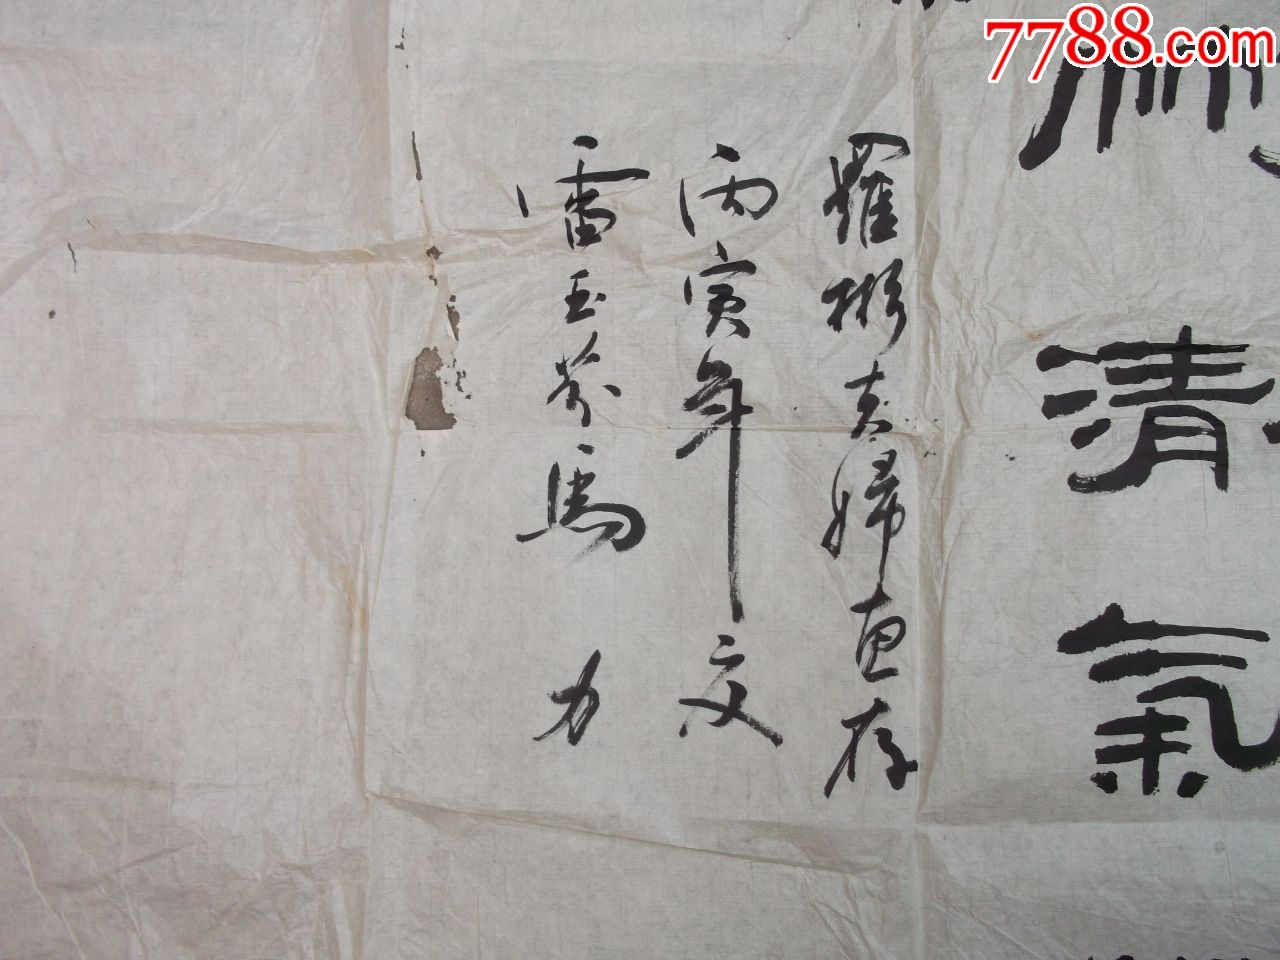 7788.com
清氣
羅彬夫婦惠存
丙寅年文
雷玉芬馬力